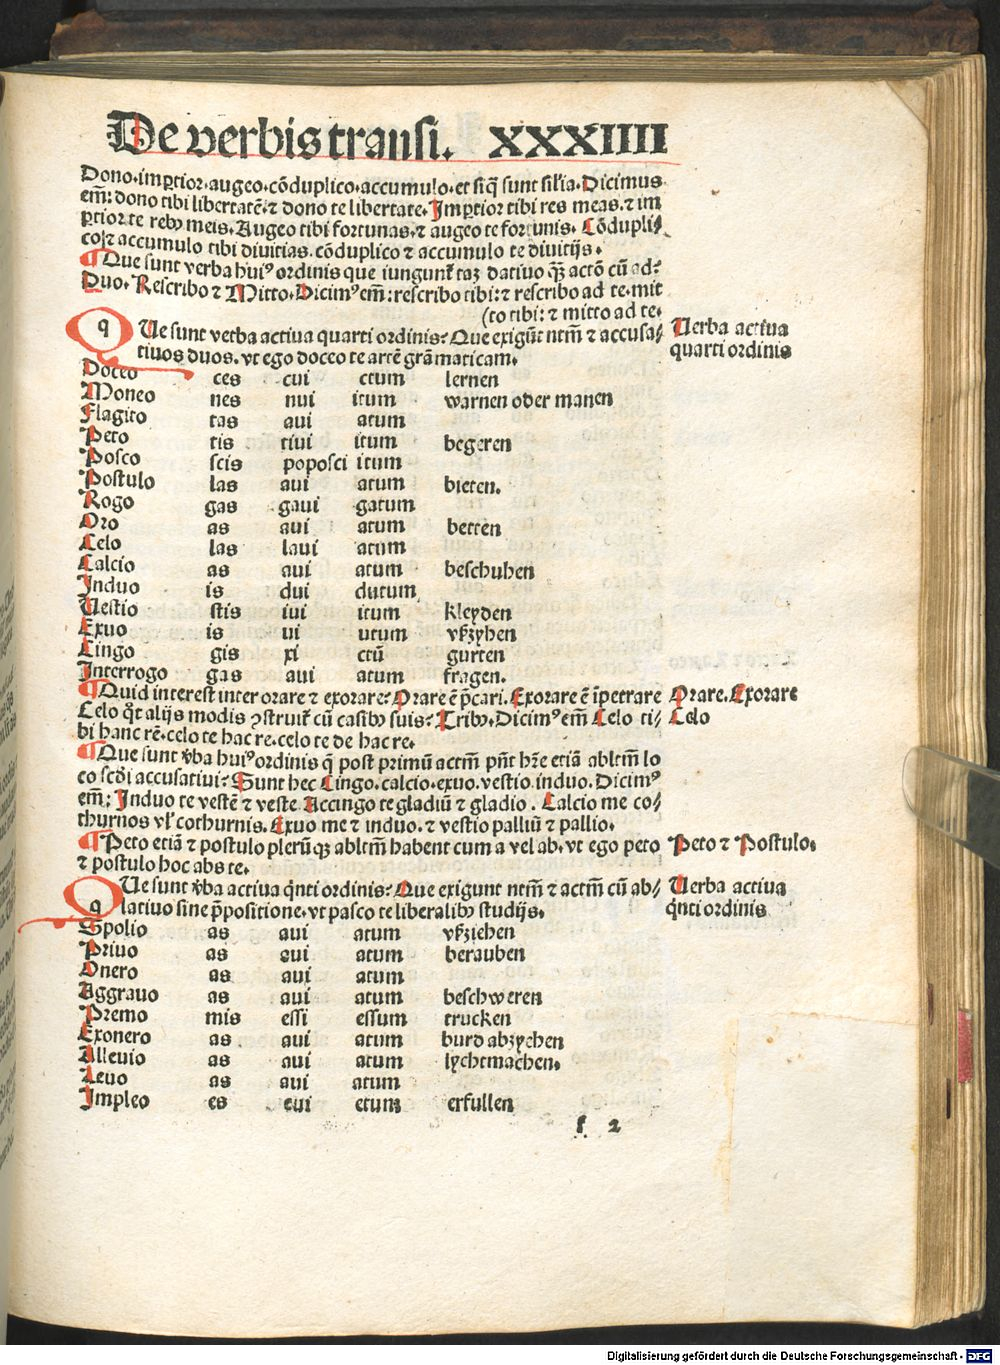 De verbis transi. XXXIIII
Dono.imꝑtior.augeo.cõduplico.accumulo.et siq̃ sunt sil'ia. Dicimus
em̃: dono tibi libertatẽ.⁊ dono te libertate. Imꝑtior tibi res meas.⁊ im
ꝑtior te rebꝰ meis. Augeo tibi fortunas.⁊ augeo te fortunis. Cõdupli⸗
co.⁊ accumulo tibi diuitias. cõduplico ⁊ accumulo te diuitijs.
¶ Que sunt verba huiꝰ ordinis que iungunt̃ taʒ datiuo q̃ʒ actõ cũ ad?
Duo. Rescribo ⁊ Mitto. Dicimꝰ em̃: rescribo tibi: ⁊ rescribo ad te. mit
(to tibi: ⁊ mitto ad te.
q Ue sunt verba actiua quarti ordinis? Que exigũt ntm̃ ⁊ accusa⸗
tiuos duos. vt ego doceo te artẽ grãmaticam.
Verba actiua
quarti ordinis
Doceo ces cui ctum lernen
Moneo nes nui itum warnen oder manen
Flagito tas aui atum
Peto tis tiui itum begeren
Posco scis poposci itum
Postulo las aui atum bieten.
Rogo gas gaui gatum
Oro as aui atum betten
Celo las laui atum
Calcio as aui atum beschuhen
Induo is dui dutum
Uestio stis iui itum kleyden
Exuo is ui utum vßzyhen
Cingo gis xi ctũ gurten
Interrogo gas aui atum fragen.
¶ Quid interest inter orare ⁊ exorare? Orare ẽ p̃cari. Exorare ẽ ĩpetrare
Orare. Exorare
Celo q̃t alijs modis ꝯstruit̃ cũ casibꝰ suis? Tribꝰ. Dicimꝰ em̃ Celo ti⸗
Celo
bi hanc rẽ. celo te hac re. celo te de hac re.
¶ Que sunt v̓ba huiꝰ ordinis q̃ post primũ actm̃ pñt hr̃e etiã abltm̃ lo
co scđi accusatiui? Sunt hec Cingo. calcio. exuo. vestio induo. Dicimꝰ
em̃: Induo te vestẽ ⁊ veste Accingo te gladiũ ⁊ gladio. Calcio me co⸗
thurnos vl' cothurnis. Exuo me ⁊ induo. ⁊ vestio palliũ ⁊ pallio.
¶ Peto etiã ⁊ postulo plerũqʒ abltm̃ habent cum a vel ab. vt ego peto
Peto ⁊ Postulo.
⁊ postulo hoc abs te.
q Ue sunt v̓ba actiua q̃nti ordinis? Que exigunt ntm̃ ⁊ actm̃ cũ ab⸗
latiuo sine p̃positione. vt pasco te liberalibꝰ studijs.
Verba actiua
q̃nti ordinis
Spolio as aui atum vßziehen
Priuo as aui atum berauben
Onero as aui atum
Aggrauo as aui atum beschweren
Premo mis essi essum trucken
Exonero as aui atum burd abzyehen
Alleuio as aui atum lychtmachen.
Leuo as aui atum
Impleo es eui etum erfullen
f 2
Digitalisierung gefördert durch die Deutsche Forschungsgemeinschaft - DFG